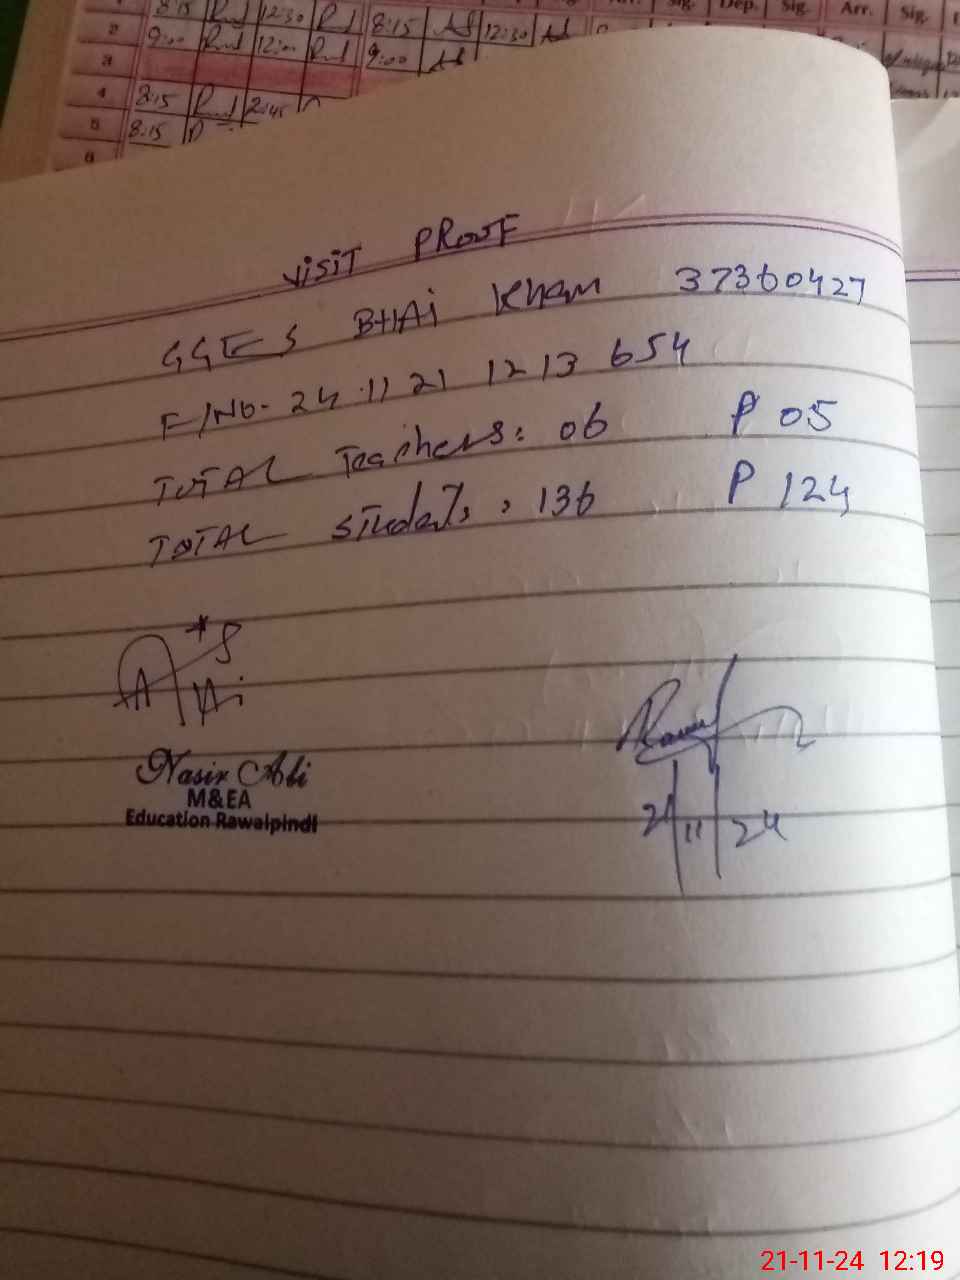 Sig. Dep. Sig. Arr. Sig.
8:15 12:30 8:15 12:30
2 9:00 12:00 9:00
3
4 8:15 2:45
5 8:15
6
VISIT PROOF
GGES BHAi Khan 37360427
F/No. 24 11 21 12 13 654
TOTAL Teachers: 06 P 05
TOTAL students: 136 P 124
Nasir Ali
M&EA
Education Rawalpindi
21/11/24
21-11-24 12:19